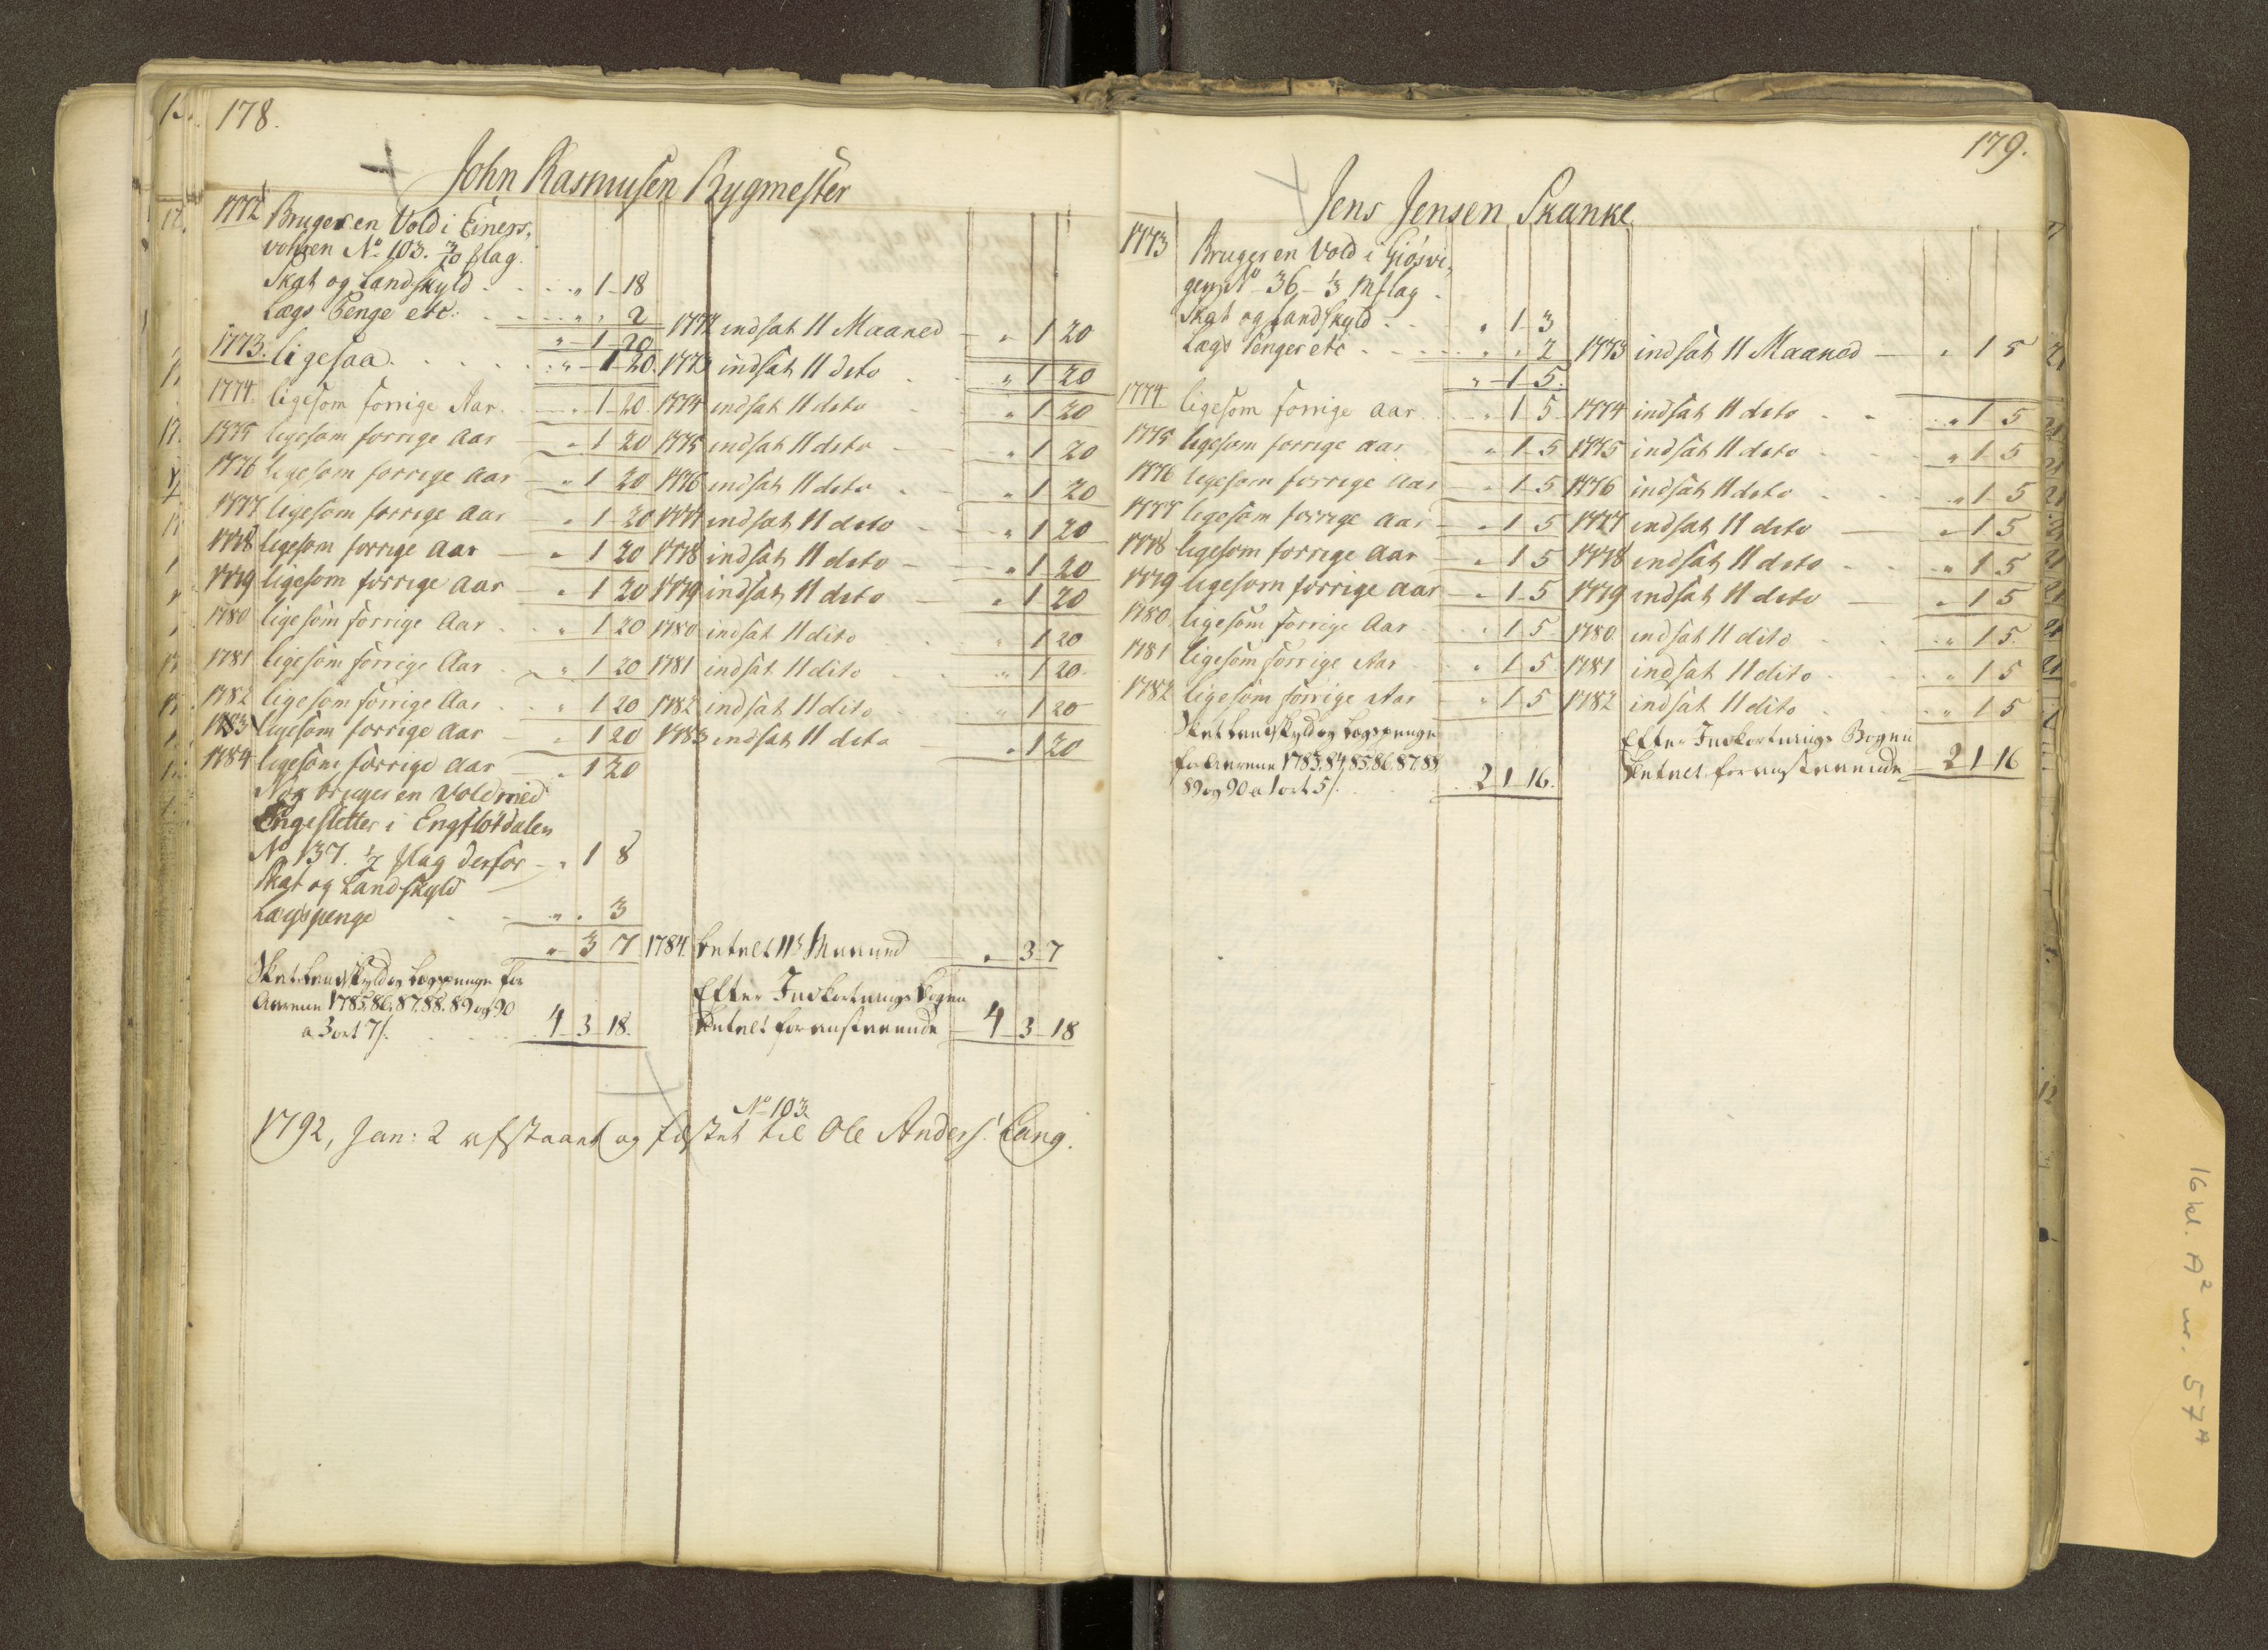 178.
John Rasmusen Bygmester
1772 Bruger en Vold i Einers,
vohlen No 103. 3/10 Mag.
Skat og Landskyld . . . " 1 18
Lægs Penge etc. . . . " " 2
" 1 20 1772 indsat 11 Maaned — " 1 20
1773. ligesaa. . . . " 1 20. 1773 indsat 11 dito . " 1 20
1774. ligesom forrige Aar. . " 1 20 1774 indsat 11 dito " 1 20
1775 ligesom forrige Aar — " 1 20 1775 indsat 11 dito — " 1 20
1776 ligesom forrige Aar — " 1 20 1776 indsat 11 dito . " 1 20
1777 ligesom forrige Aar — " 1 20 1777 indsat 11 dito — " 1 20
1778 ligesom forrige Aar — " 1 20 1778 indsat 11 dito — " 1 20
1779 ligesom forrige Aar — " 1 20 1779 indsat 11 dito — " 1 20
1780 ligesom forrige Aar . " 1 20 1780 indsat 11 dito . " 1 20
1781 ligesom forrige Aar . " 1 20 1781 indsat 11 dito . " 1 20.
1782 ligesom forrige Aar . " 1 20 1782 indsat 11 dito . " 1 20
1783 ligesom forrige Aar — " 1 20 1783 indsat 11 dito " 1 20
1784 ligesom forrige Aar — " 1 20
Nok bruger en Vold med
Engesletter i Engflotdalen
No 137. 1/2 Mag derfor — " 1 8
Skat og Landskyld —
Lægspenge . . " " 3
" 3 7 1784. betalt 11 Maaned " 3 7
Skat Landskyld og Lægspenge for
Aarene 1785, 86, 87, 88. 89 og 90
a 3 ort 7 s. . . . 4 3 18.
Efter Indkortnings Bogen
betalt for anstaaende 4 3 18
No 103.
1792, Jan: 2 afstaaet og fæstet til Ole Anders. Lang.
179.
Jens Jensen Skanke
1773 Bruger en Vold i Giösvi,
gen No 36 - 1/3 Mslag .
Skat og Landskyld . . " 1 3
Lægs Penger etc . . . " " 2 1773 indsat 11 Maaned — " 1 5
" 1 5.
1774 ligesom forrige Aar . " 1 5 1774 indsat 11 dito . . " 1 5
1775 ligesom forrige Aar " 1 5 1775 indsat 11 dito . . " 1 5
1776 ligesom forrige Aar — " 1 5 1776 indsat 11 dito . . " 1 5
1777 ligesom forrige Aar — " 1 5 1777 indsat 11 dito — " 1 5
1778 ligesom forrige Aar — " 1 5 1778 indsat 11 dito . " 1 5
1779 ligesom forrige Aar — " 1 5 1779 indsat 11 dito — " 1 5
1780 ligesom forrige Aar . " 1 5 1780 indsat 11 dito . " 1 5.
1781 ligesom forrige Aar . " 1 5 1781 indsat 11 dito . " 1 5
1782 ligesom forrige Aar " 1 5 1782 indsat 11 dito . " 1 5
Skat Landskyld og Lægspenge
for Aarene 1783, 84, 85, 86, 87, 88,
89 og 90 a 1 ort 5 s. . . 2 1 16.
Efter Indkortnings Bogen
betalt for anstaaende 2 1 16
16 kl. A2 nr. 57 A